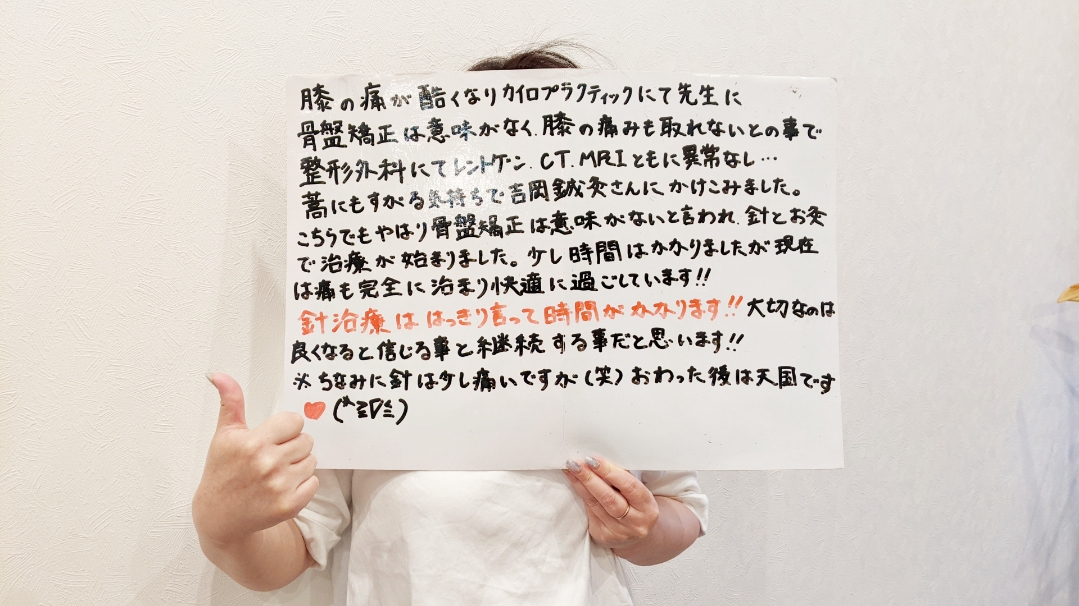 膝の痛が酷くなりカイロプラクティックにて先生に
骨盤矯正は意味がなく、膝の痛みも取れないとの事で
整形外科にてレントゲン、CT、MRIともに異常なし…
藁にもすがる気持ちで吉岡鍼灸さんに、かけこみました。
こちらでもやはり骨盤矯正は意味がないと言われ、針とお灸
で治療が始まりました。少し時間はかかりましたが現在
は痛も完全に治まり快適に過ごしています!!
針治療ははっきり言って時間がかかります!!大切なのは
良くなると信じる事と継続する事だと思います!!
※ちなみに針は少し痛いですが(笑)おわった後は天国です
♥(^≧∇≦)